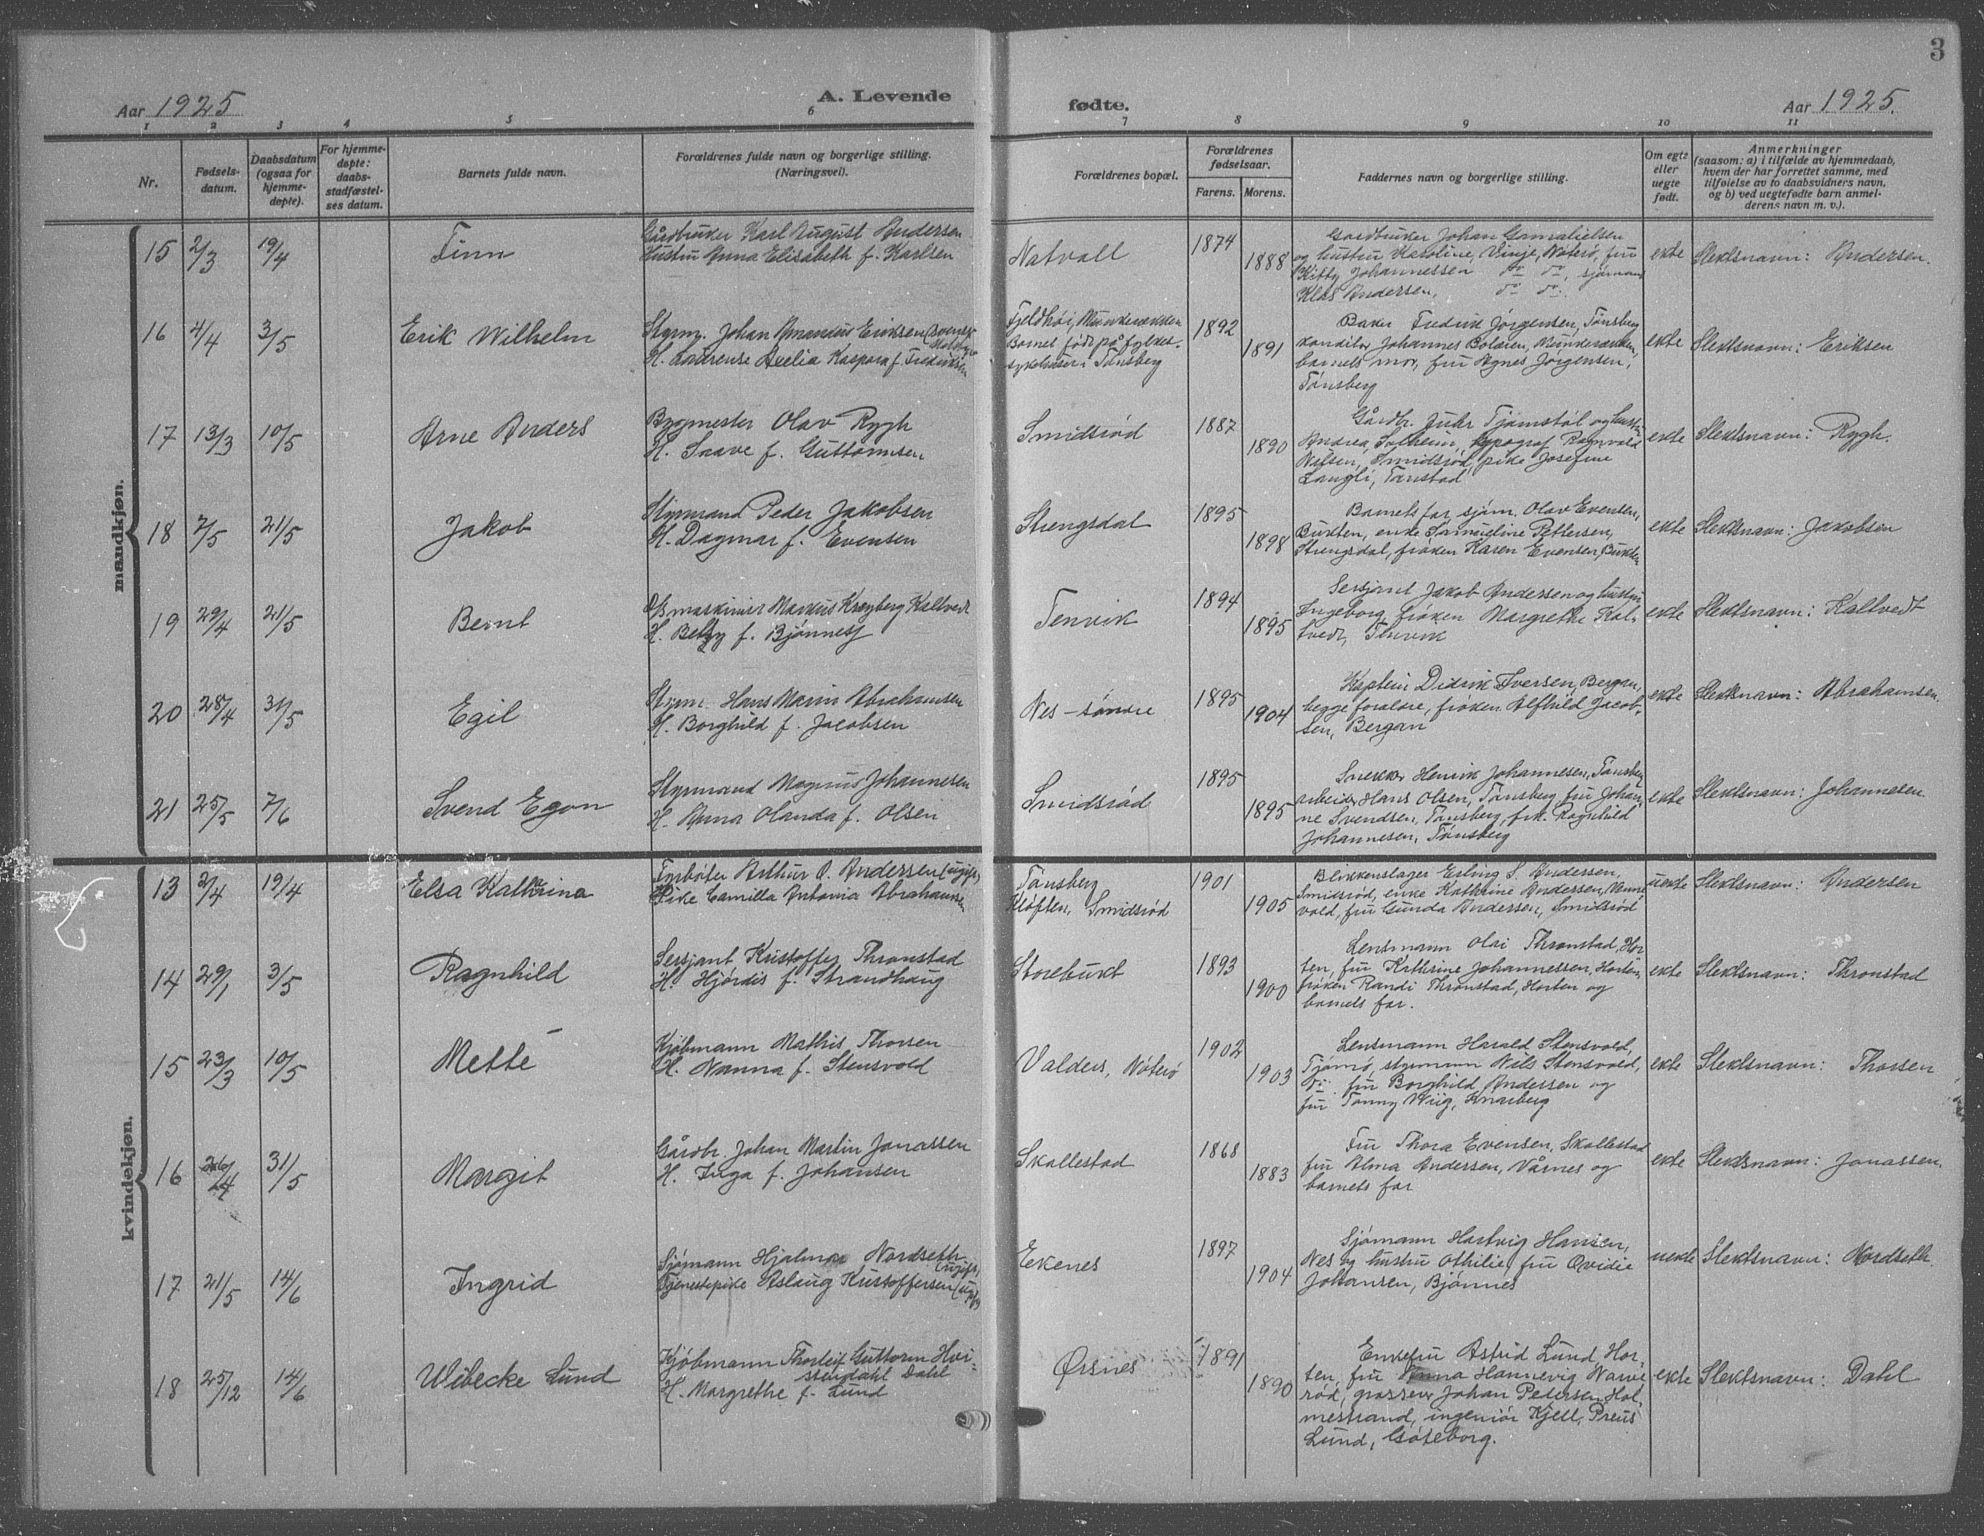 3
Aar 1925
A. Levende
fødte.
Aar 1925.
1 2 3 4 5 6 7 8 9 10 11
Nr.
Fødsels-
datum.
Daabsdatum
(ogsaa for
hjemme-
døpte).
For hjemme-
døpte:
daabs-
stadfæstel-
ses datum.
Barnets fulde navn.
Forældrenes fulde navn og borgerlige stilling.
(Næringsvei).
Forældrenes bopæl.
Forældrenes
fødselsaar.
Farens. Morens.
Faddernes navn og borgerlige stilling.
Om egte
eller
uegte
født.
Anmerkninger
(saasom: a) i tilfælde av hjemmedaab,
hvem der har forrettet samme, med
tilføielse av to daabsvidners navn,
og b) ved uegtefødte barn anmel-
derens navn m. v.).
mandkjøn.
15 2/3 19/4 Finn
Gårdbruker Karl August Andersen
Hustru Anna Elisabeth f. Karlsen
Natvall 1874 1888
Gardbruker Johan Gamalielsen
og hustru Karoline, Vinje, Nøterø, fru
Kitty Johannessen do do, sjømann
Klas Andersen, do do.
ekte Slektsnavn: Andersen.
16 4/4 3/5 Erik Wilhelm
Styrm. Johan Amandus Eriksen (svensk
H. Laurense Avelia Kaspara f. Fredriksen
Fjeldhøi, Munkerækken
Barnet født på fylkes-
sykehuset i Tønsberg
1892 1891
Baker Fredrik Jørgensen, Tønsberg
konditor Johannes Bolæren, Munkerækken,
barnets mor, fru Agnes Jørgensen,
Tønsberg
ekte Slektsnavn: Eriksen
17 13/3 10/5 Arne Anders
Bygmester Olav Rygh
H. Snave f. Guttormsen
Smidsrød 1887 1890
Gårdbr. Juhr Tjømstøl og hustru
Andrea, Solheim, typograf Ragnvald
Nilsen, Smidsrød, pike Josefine
Langli, Tanstad
ekte Slektsnavn: Rygh.
18 7/5 21/5 Jakob
Styrmand Peder Jakobsen
H. Dagmar f. Evensen
Strengsdal 1895 1898
Barnets far, sjøm. Olav Evensen,
Bukten, enke Samueline Pettersen,
Strengsdal, frøken Karen Evensen, Bukten
ekte Slektsnavn: Jakobsen
19 29/4 21/5 Bernt
maskinist Markus Kregberg Kaltvedt
H. Betsy f. Bjønness
Tenvik 1894 1895
Sersjant Jakob Andersen og hustru
Ingeborg, frøken Margrethe Kal-
tvedt, Tenvik
ekte Slektsnavn: Kaltvedt
20 28/4 31/5 Egil
Styrm. Hans Marin Abrahamsen
H. Borghild f. Jacobsen
Nes – søndre 1895 1904
Kaptein Didrik Iversen, Bergan,
begge foreldre, frøken Alfhild Jacob-
sen, Bergan
ekte Slektsnavn: Abrahamsen.
21 25/5 7/6 Svend Egon
Styrmand Magnus Johannesen
H. Anna Olanda f. Olsen
Smidsrød 1895 1895
Snekker Henrik Johannesen, Tønsberg
arbeider Hans Olsen, Tønsberg, fru Johan-
ne Svendsen, Tønsberg, frk. Ragnhild
Johannesen, Tønsberg
ekte Slektsnavn: Johannesen.
kvindekjøn.
13 2/4 19/4 Elsa Kathrine
Fyrbøter Arthur O. Andersen (ugift)
Pike Camilla Antonia Abrahamsen
Tønsberg
Kløften, Smidsrød
1901 1905
Blikkenslager Erling S. Andersen,
Smidsrød, enke Kathrine Andersen,
vold, fru Gunda Andersen, Smidsrød
uekte Slektsnavn: Andersen
14 29/1 3/5 Ragnhild
Sersjant Kristoffer Thronstad
H. Hjørdis f. Strandhaug
Storebukt 1893 1900
Lensmann Olai Thronstad, Hor-
ten, fru Kathrine Johannessen, Horten,
frøken Randi Thronstad, Horten og
barnets far.
ekte Slektsnavn: Thronstad
15 23/3 10/5 Mette
Kjøbmann Mathis Thorsen
H. Nanna f. Stensvold
Valders, Nøterø 1902 1903
Lensmann Harald Stensvold,
Tjømø, styrmann Nils Stensvold,
do fru Borghild Andersen og
fru Tonny Wiig, Knarberg
ekte Slektsnavn: Thorsen
16 26/4 31/5 Margit
Gårdbr. Johan Martin Jonassen
H. Inga f. Johansen
Skallestad 1868 1883
Fru Thora Evensen, Skallestad
fru Alma Andersen, Vårnes og
barnets far
ekte Slektsnavn: Jonassen.
17 21/5 14/6 Ingrid
Sjømann Hjalmar Nordseth (ugift)
Tjenestepike Aslaug Kristoffersen (ugift)
Ekenes 1897 1904
Sjømann Hartvig Hansen,
Nes og hustru Othilie, fru Ovidie
Johansen, Bjønnes
uekte Slektsnavn: Nordseth.
18 25/12 14/6 Wibecke Lund
Kjøbmann Thorleif Guttorm Hvi-
stendahl Dahl
H. Margrethe f. Lund
Ørsnes 1891 1890
Enkefru Astrid Lund Hor-
ten, fru Anna Hannevig Narve-
rød, grosserer Johan Petersen Hol-
mestrand, ingeniør Kjell Preus
Lund, Göteborg.
ekte Slektsnavn: Dahl